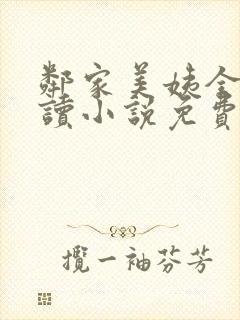 鄰家美姨全
讀小説免費
攬一袖芬芳